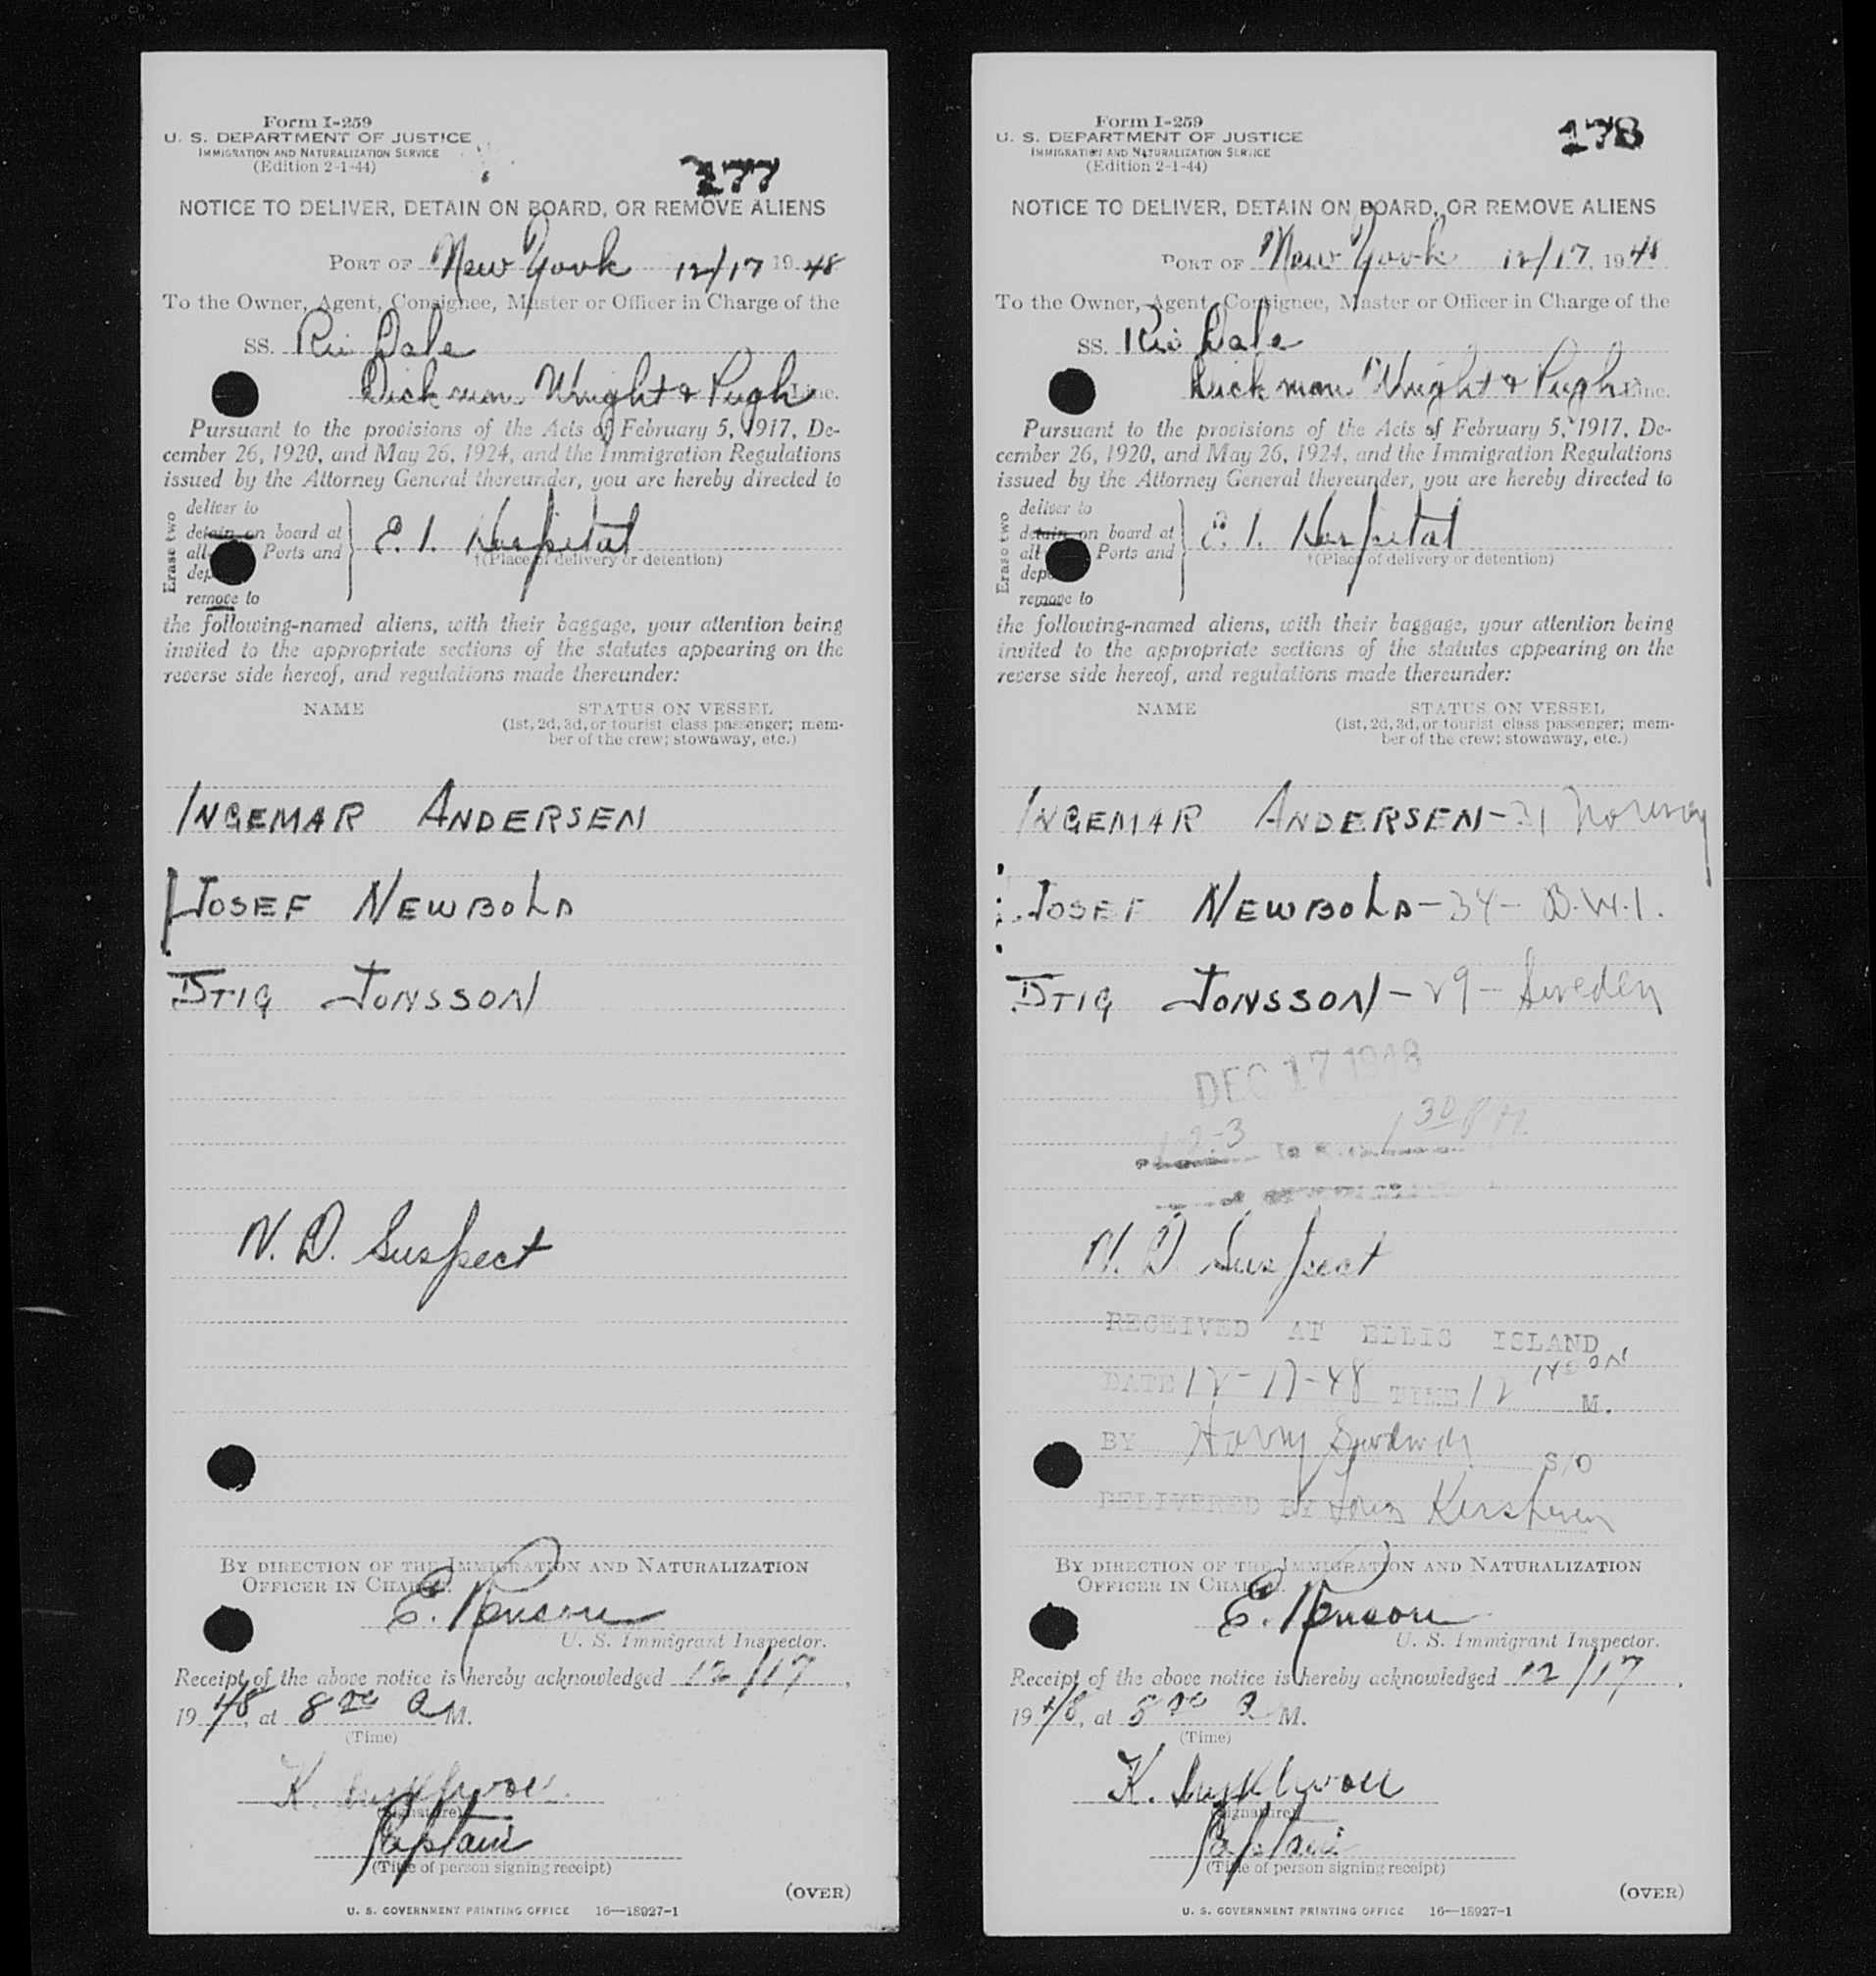 Form I-259
U. S. DEPARTMENT OF JUSTICE
IMMIGRATION AND NATURALIZATION SERVICE
(Edition 2-1-44)
177
NOTICE TO DELIVER, DETAIN ON BOARD, OR REMOVE ALIENS
PORT OF New York 12/17 1948
To the Owner, Agent, Consignee, Master or Officer in Charge of the
SS. Rio Dale
Dickman Wright & Pugh Line.
Pursuant to the provisions of the Acts of February 5, 1917, De-
cember 26, 1920, and May 26, 1924, and the Immigration Regulations
issued by the Attorney General thereunder, you are hereby directed to
Erase two
deliver to
detain on board at
all Ports and
dep
remove to
E. I. Hospital
†(Place of delivery or detention)
the following-named aliens, with their baggage, your attention being
invited to the appropriate sections of the statutes appearing on the
reverse side hereof, and regulations made thereunder:
NAME STATUS ON VESSEL
(1st, 2d, 3d, or tourist class passenger; mem-
ber of the crew; stowaway, etc.)
INGEMAR ANDERSEN
JOSEF NEWBOLD
STIG JONSSON
N. D. Suspect
BY DIRECTION OF THE IMMIGRATION AND NATURALIZATION
OFFICER IN CHARGE.
E.
U. S. Immigrant Inspector.
Receipt of the above notice is hereby acknowledged 12/17,
1948, at 8 00 A M.
(Time)
K.
(Signature)
Captain
(Title of person signing receipt)
(OVER)
U. S. GOVERNMENT PRINTING OFFICE 16—18927-1
Form I-259
U. S. DEPARTMENT OF JUSTICE
IMMIGRATION AND NATURALIZATION SERVICE
(Edition 2-1-44)
178
NOTICE TO DELIVER, DETAIN ON BOARD, OR REMOVE ALIENS
PORT OF New York 12/17, 1948
To the Owner, Agent, Consignee, Master or Officer in Charge of the
SS. Rio Dale
Dickman Wright & Pugh Line.
Pursuant to the provisions of the Acts of February 5, 1917, De-
cember 26, 1920, and May 26, 1924, and the Immigration Regulations
issued by the Attorney General thereunder, you are hereby directed to
Erase two
deliver to
detain on board at
all Ports and
dep
remove to
E. I. Hospital
†(Place of delivery or detention)
the following-named aliens, with their baggage, your attention being
invited to the appropriate sections of the statutes appearing on the
reverse side hereof, and regulations made thereunder:
NAME STATUS ON VESSEL
(1st, 2d, 3d, or tourist class passenger; mem-
ber of the crew; stowaway, etc.)
INGEMAR ANDERSEN - 31 Norway
JOSEF NEWBOLD - 34 - B.W.I.
STIG JONSSON - 29 - Sweden
DEC 17 1948
1-2-3 1 30 PM
N. D. Suspect
RECEIVED AT ELLIS ISLAND
DATE 12-17-48 TIME 12 NOON M.
BY Harry S/O
DELIVERED BY
BY DIRECTION OF THE IMMIGRATION AND NATURALIZATION
OFFICER IN CHARGE.
E.
U. S. Immigrant Inspector.
Receipt of the above notice is hereby acknowledged 12/17,
1948, at 8 00 A M.
(Time)
K.
(Signature)
Captain
(Title of person signing receipt)
(OVER)
U. S. GOVERNMENT PRINTING OFFICE 16—18927-1